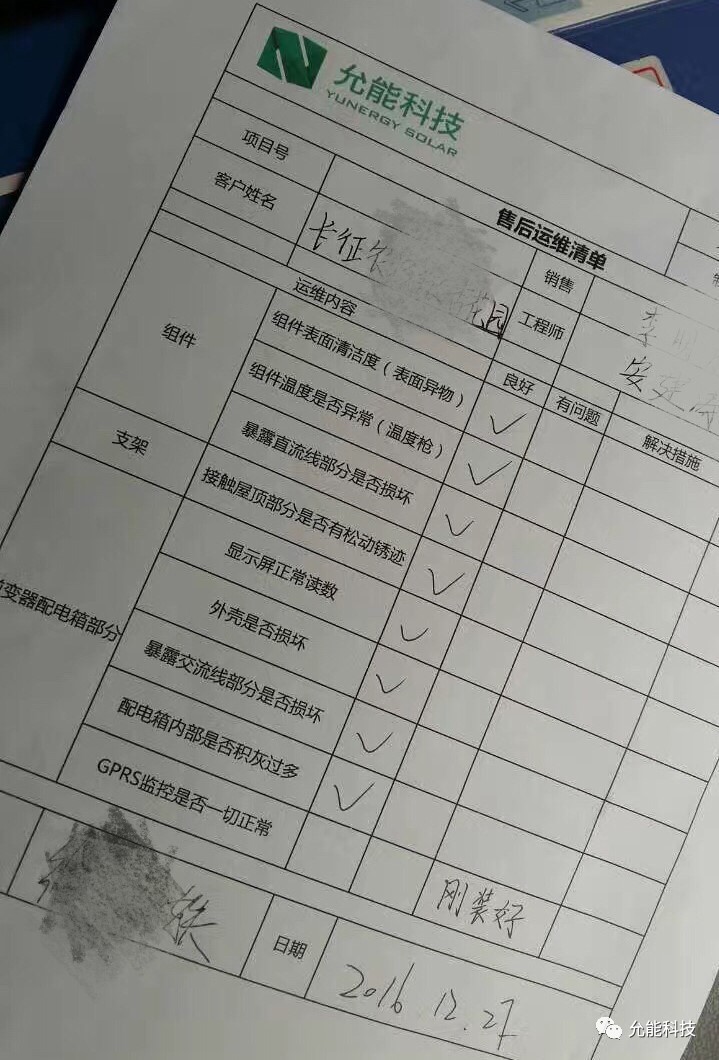 允能科技
YUNERGY SOLAR
售后运维清单
项目号
销售
客户姓名
长征
园
工程师
李
安
运维内容
良好
有问题
解决措施
组件
组件表面清洁度（表面异物）
✓
组件温度是否异常（温度枪）
✓
暴露直流线部分是否损坏
✓
支架
接触屋顶部分是否有松动锈迹
✓
变器配电箱部分
显示屏正常读数
✓
外壳是否损坏
✓
暴露交流线部分是否损坏
✓
配电箱内部是否积灰过多
✓
GPRS监控是否一切正常
刚装好
日期
2016.12.27
允能科技